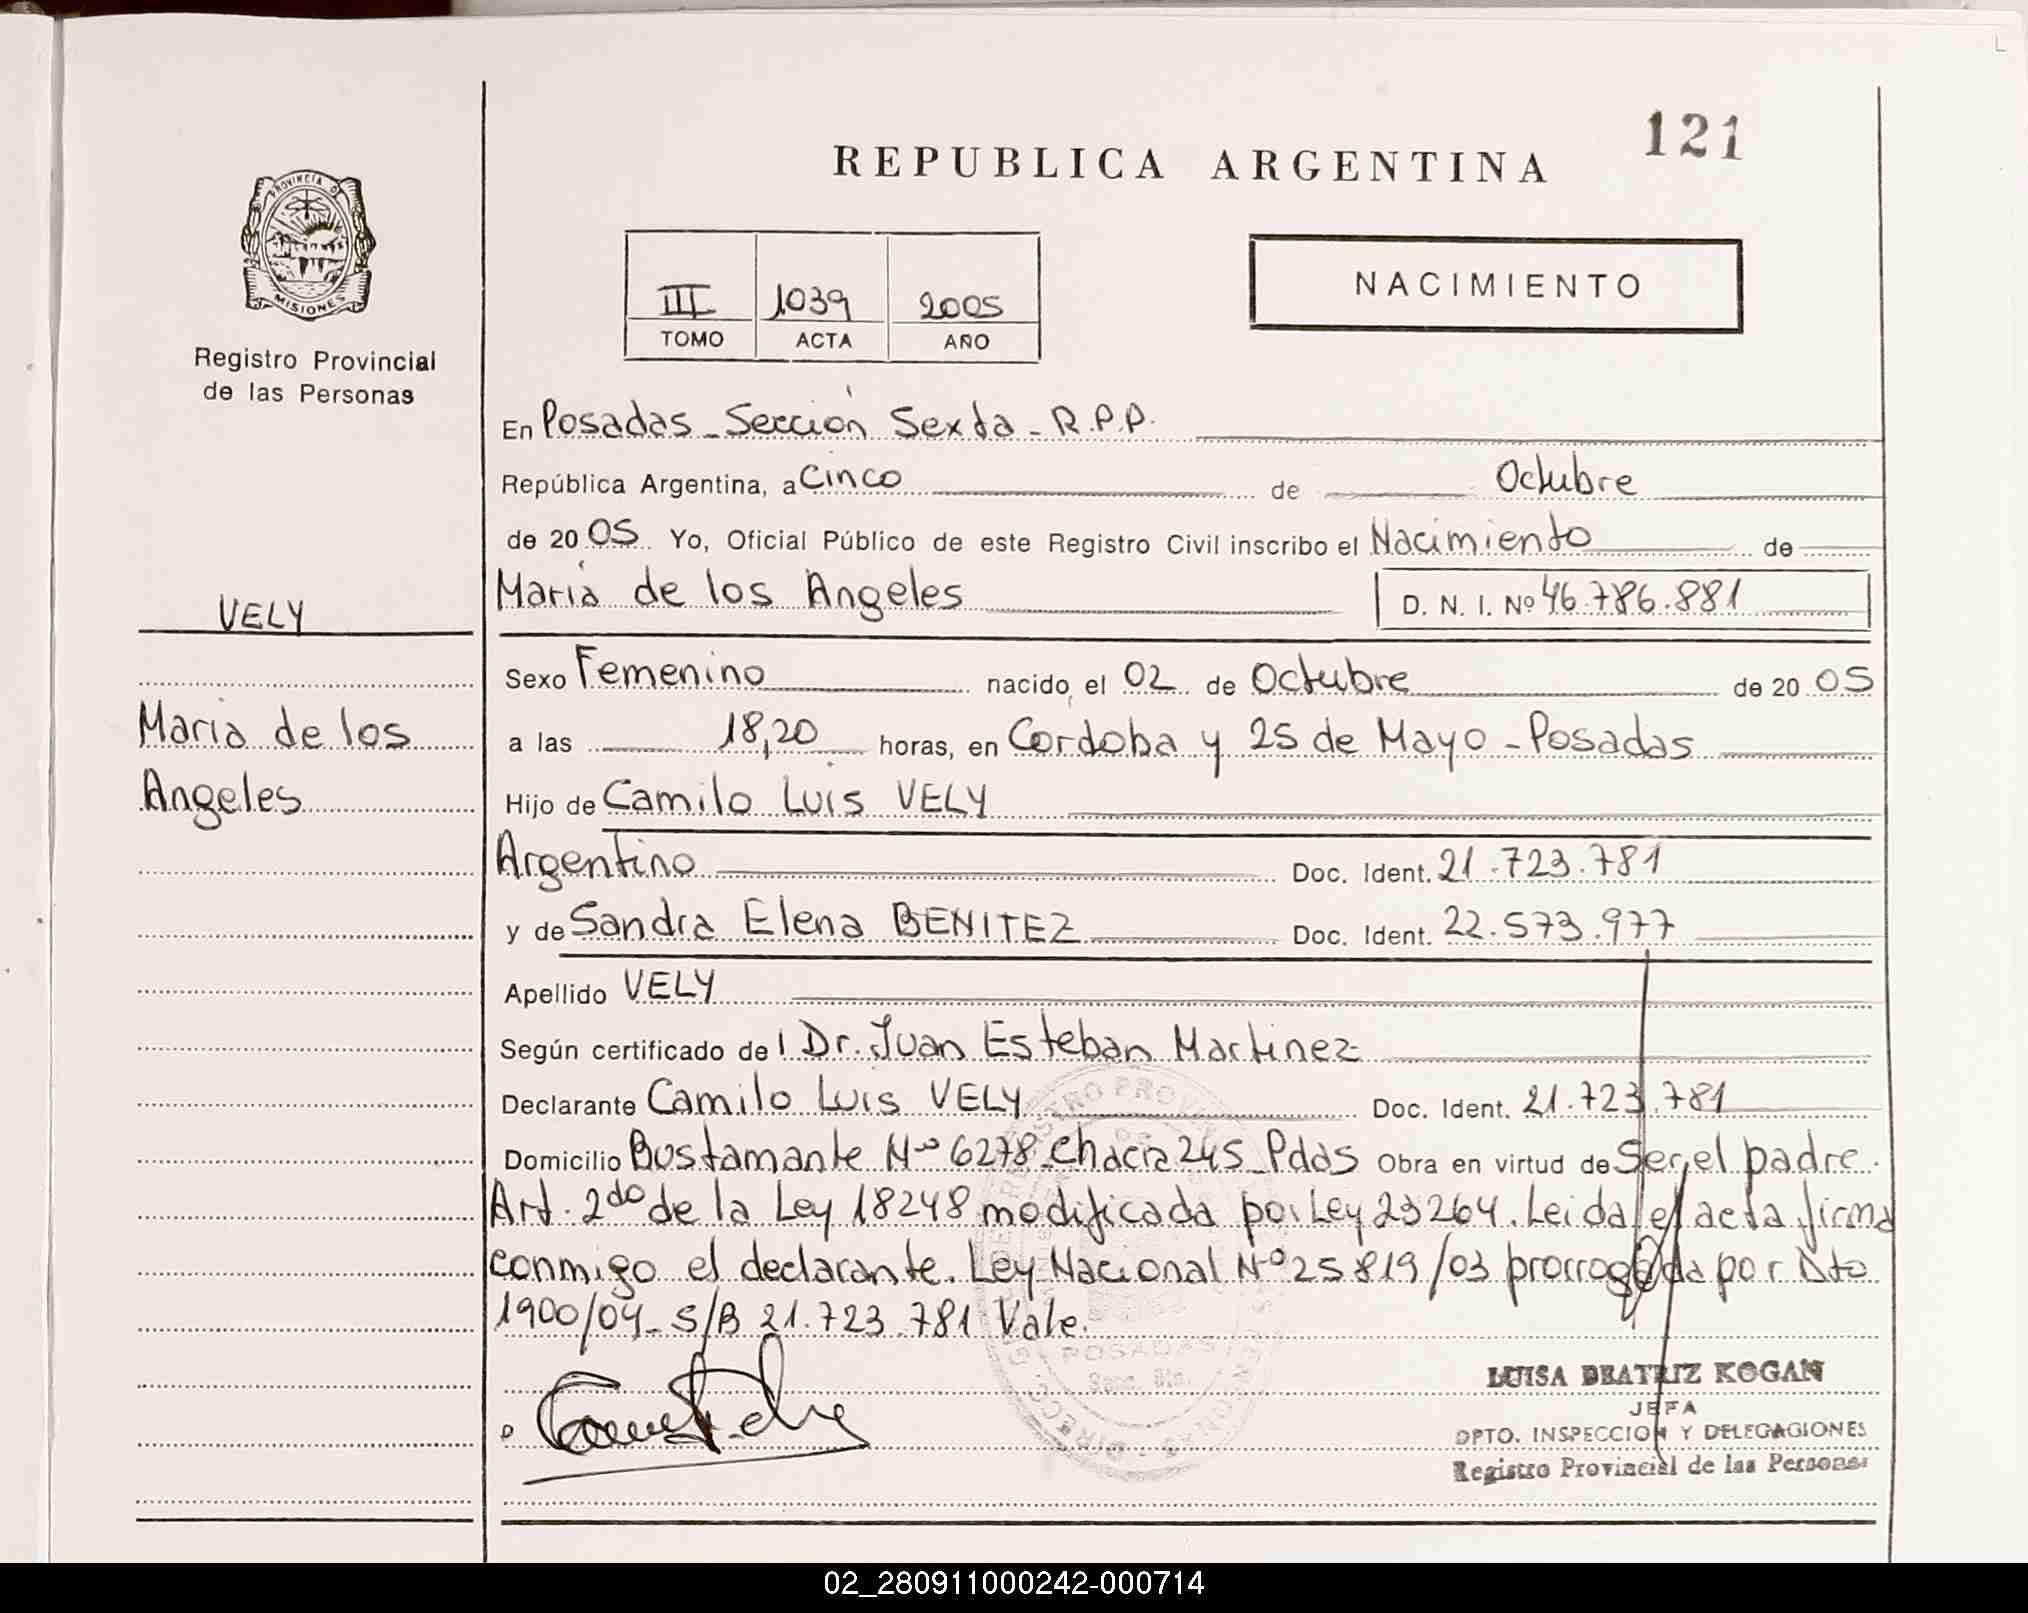 121
REPUBLICA ARGENTINA
PROVINCIA D
MISIONES
Registro Provincial
de las Personas
NACIMIENTO
III 1039 2005
TOMO ACTA AÑO
En Posadas - Sección Sexta - R.P.P.
República Argentina, a Cinco de Octubre
de 2005 Yo, Oficial Público de este Registro Civil inscribo el Nacimiento de
María de los Angeles D. N. I. Nº 46.786.881
VELY
Maria de los
Angeles
Sexo Femenino nacido el 02 de Octubre de 2005
a las 18,20 horas, en Cordoba y 25 de Mayo - Posadas
Hijo de Camilo Luis VELY
Argentino Doc. Ident. 21.723.781
y de Sandra Elena BENITEZ Doc. Ident. 22.573.977
Apellido VELY
Según certificado del Dr. Juan Esteban Martinez
Declarante Camilo Luis VELY Doc. Ident. 21.723.781
Domicilio Bustamante Nº 6278 - Chacra 245 - Pdas Obra en virtud de Ser el padre.
Art. 2do de la Ley 18248 modificada por Ley 23264. Leida el acta, firma
conmigo el declarante. Ley Nacional Nº 25819/03 prorrogada por Dto
1900/04 - S/B 21.723.781 Vale.
POSADAS
LUISA BEATRIZ KOGAN
JEFA
DPTO. INSPECCION Y DELEGACIONES
Registro Provincial de las Personas
02_280911000242-000714